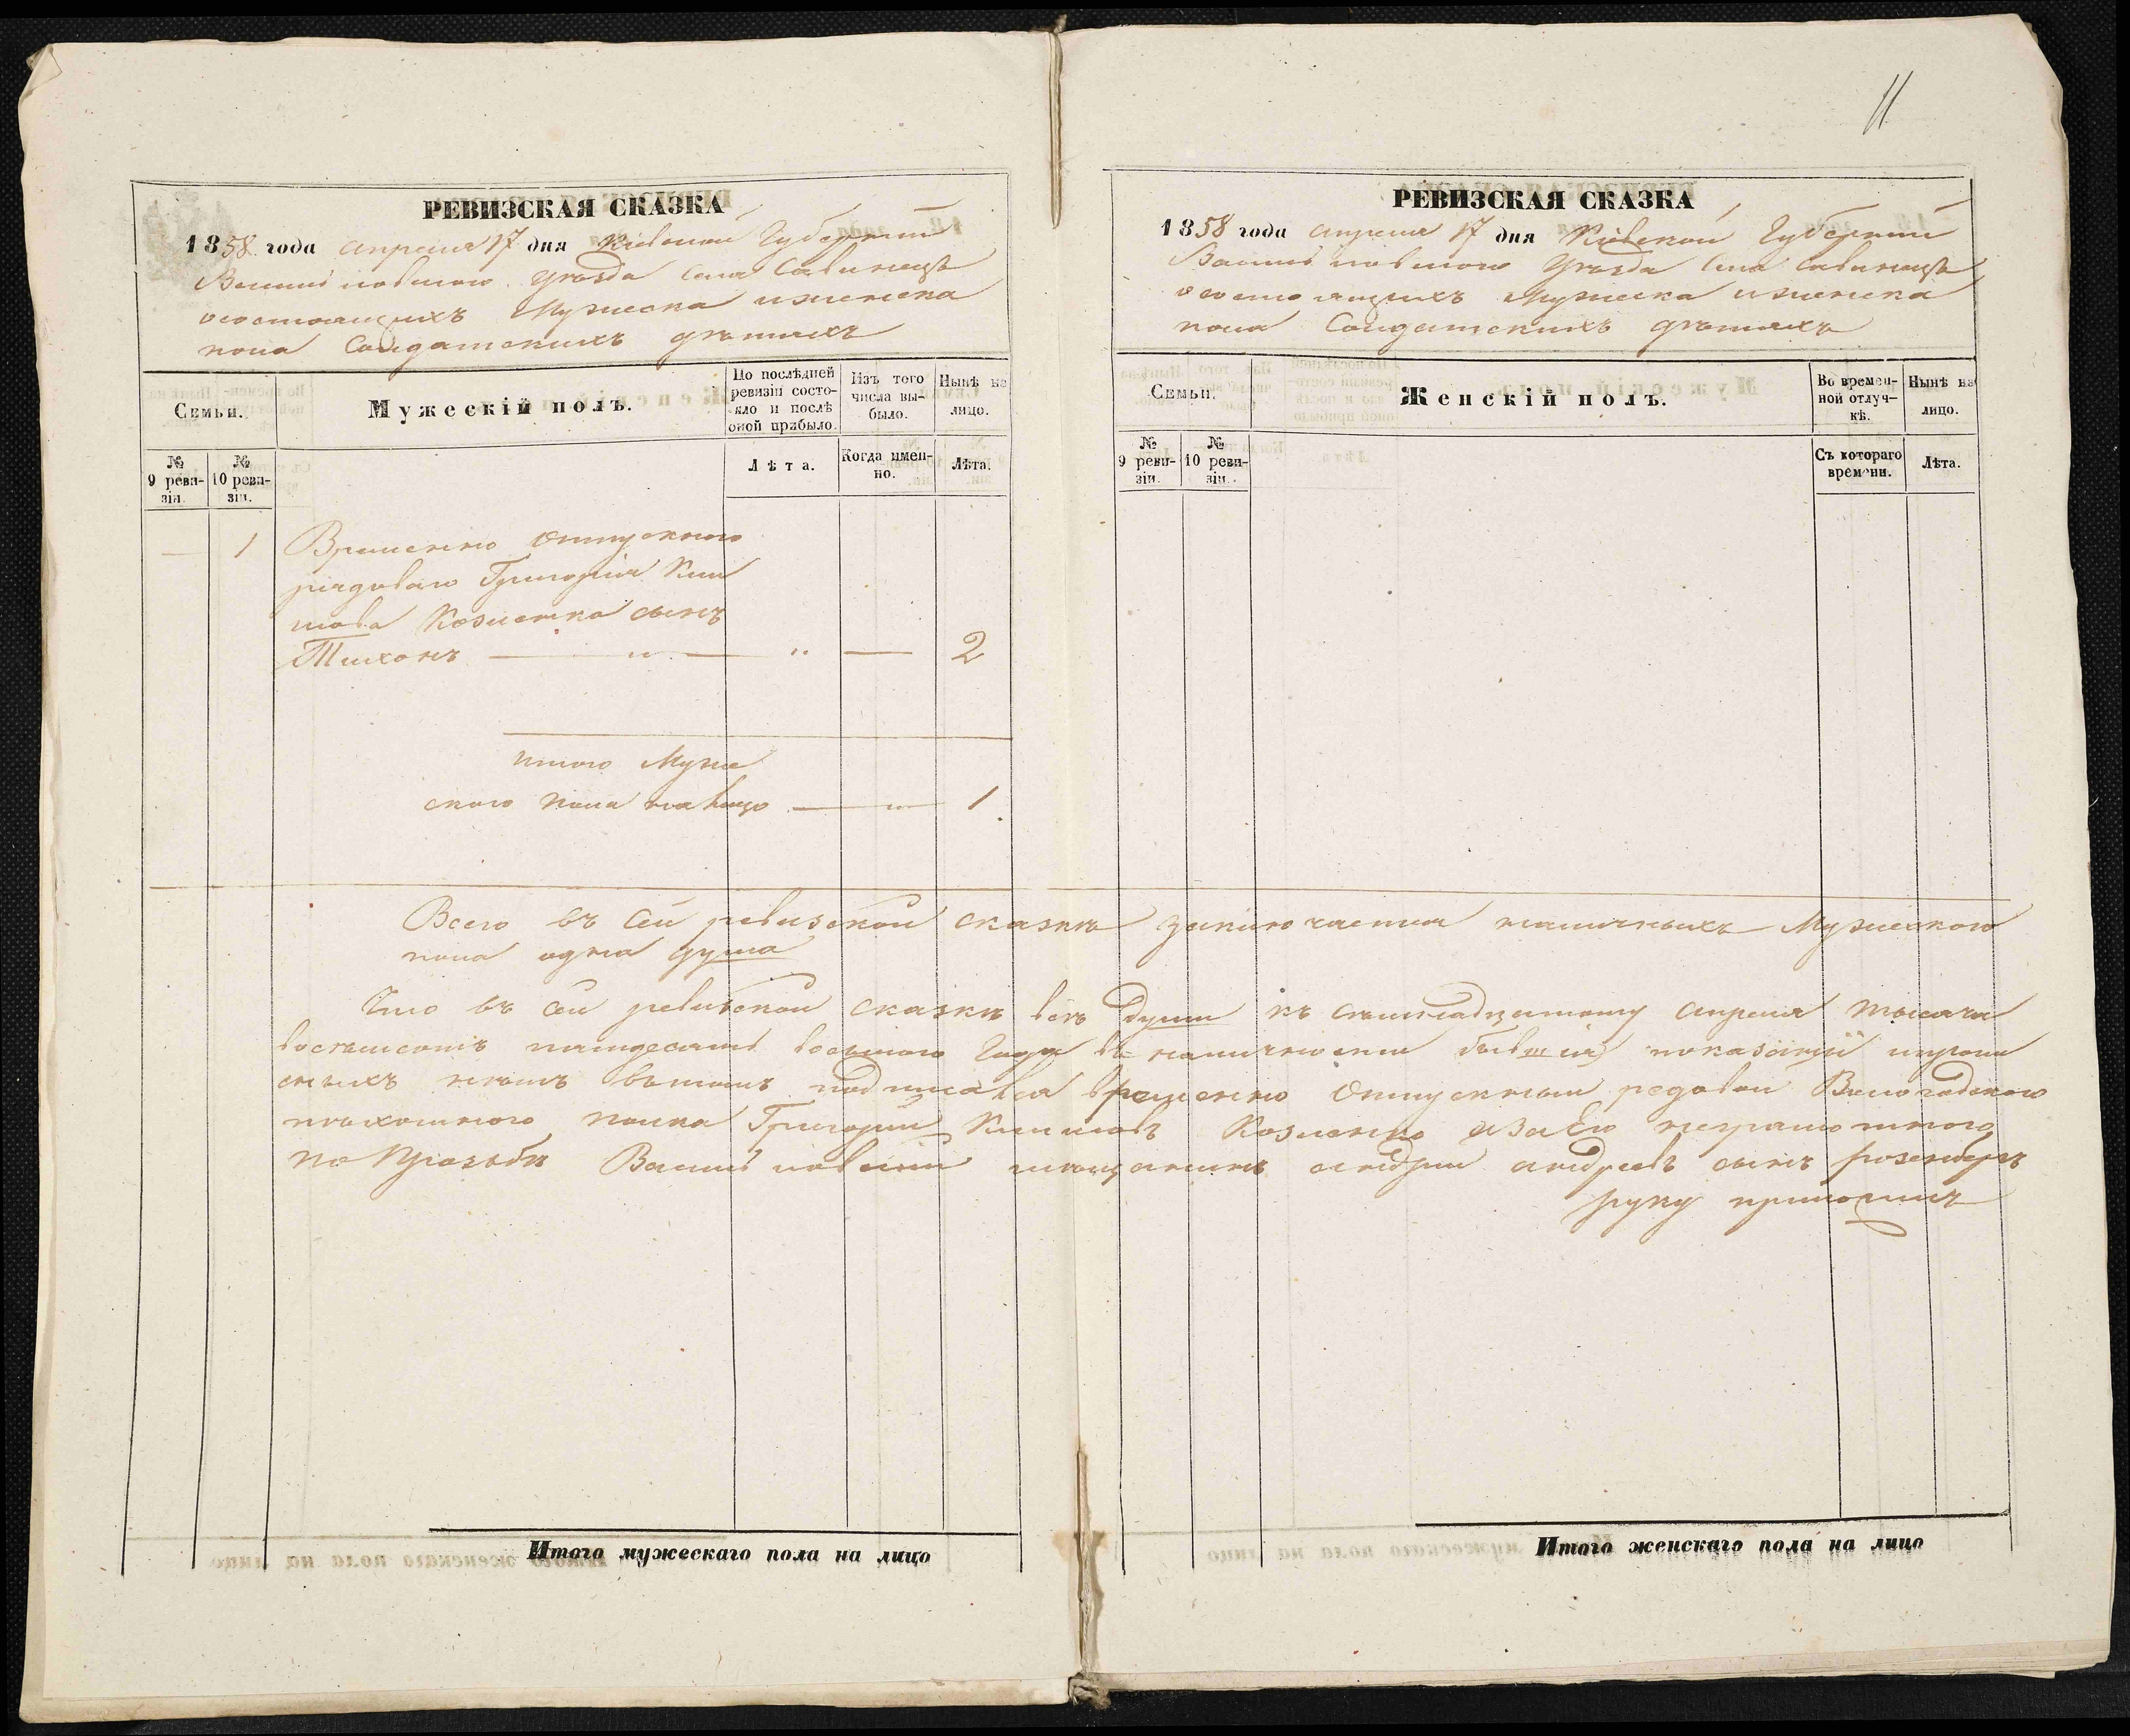 11
РЕВИЗСКАЯ СКАЗКА
1858 года Апреля 17 дня Кіевской Губерніи
Васильковского уезда села Савинецъ
о состоящихъ Мужеска и женска
пола Солдатскихъ детяхъ
Семьи.
Мужескій полъ.
По послѣдней ревизіи состояло и послѣ оной прибыло.
Изъ того числа выбыло.
Нынѣ на лицо.
№ 9 ревизіи.
№ 10 ревизіи.
Лѣта.
Когда именно.
Лѣта.
— 1 Временно отпускного
рядоваго Григорія Кли
мова Козленка сынъ
Тихонъ — " — " — 2
итого Муже
ского пола на лицо — " — 1
РЕВИЗСКАЯ СКАЗКА
1858 года Апреля 17 дня Кіевской Губерніи
Васильковского уезда села Савинецъ
о состоящихъ Мужеска и женска
пола Солдатскихъ детяхъ
Семьи.
Женскій полъ.
Во временной отлучкѣ.
Нынѣ на лицо.
№ 9 ревизіи.
№ 10 ревизіи.
Съ котораго времени.
Лѣта.
Всего въ сей ревизской сказке заключается наличныхъ Мужеского
пола одна душа
Что въ сей ревизской сказки все души къ семнадцатому апреля тысяча
восемьсотъ пятдесятъ восьмого Года въ наличности бывшия показаны и пропи
сныхъ нетъ въ томъ подписався временно отпускный редовой
пехотного полка Григорий Климовъ Козленко а за Его неграмотного
по прозьбе Васильковский мещанинъ андрей андреевъ сынъ
руку приложилъ
Итого мужескаго пола на лицо
Итого женскаго пола на лицо